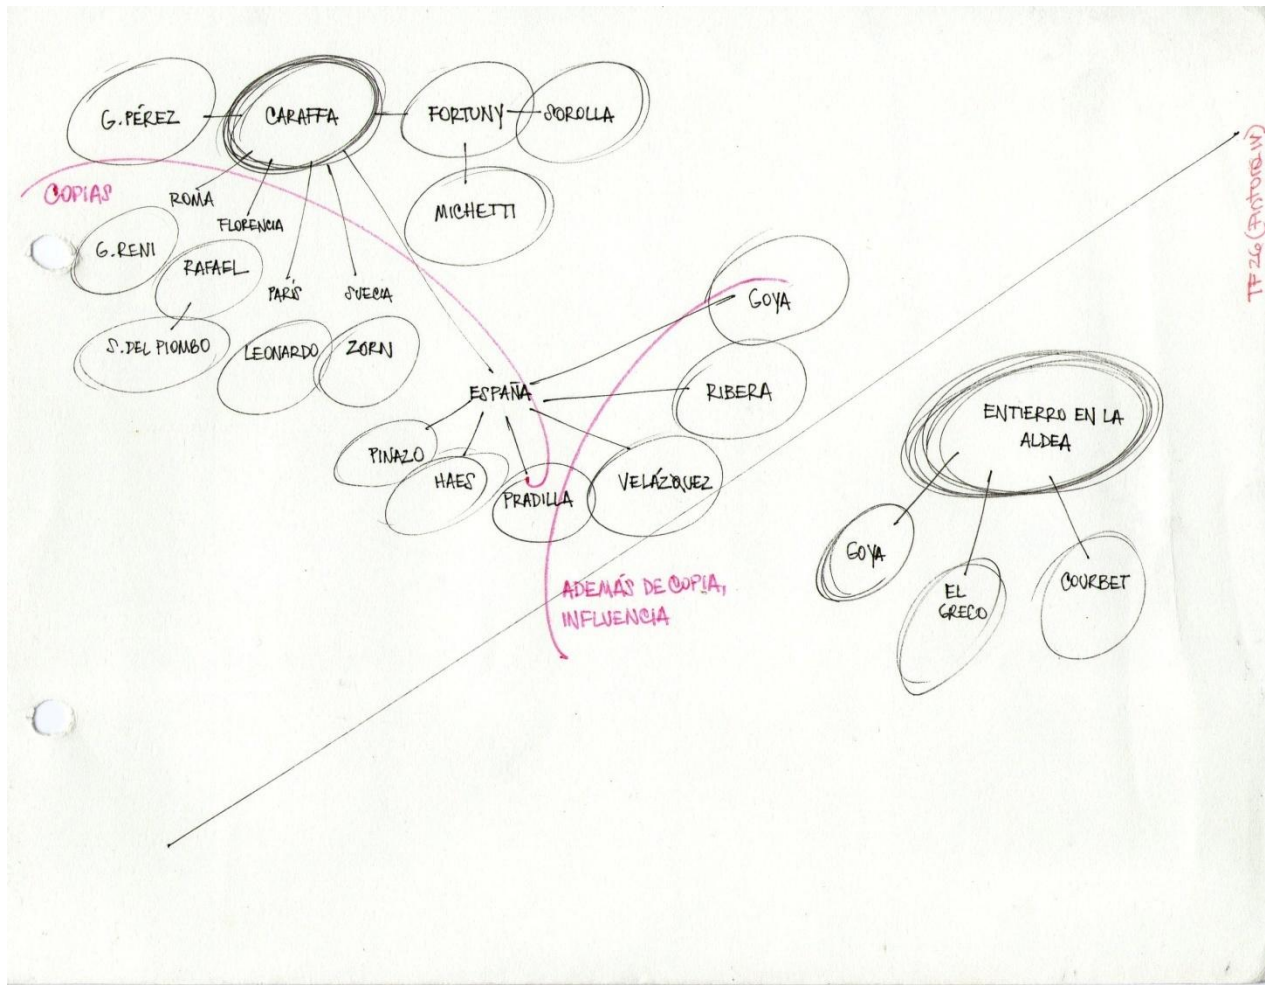 G. PÉREZ
CARAFFA
FORTUNY
SOROLLA
COPIAS
ROMA
FLORENCIA
MICHETTI
G. RENI
RAFAEL
PARÍS
SUECIA
S. DEL PIOMBO
LEONARDO
ZORN
GOYA
ESPAÑA
RIBERA
PINAZO
HAES
PRADILLA
VELÁZQUEZ
ADEMÁS DE COPIA,
INFLUENCIA
ENTIERRO EN LA
ALDEA
GOYA
EL
GRECO
COURBET